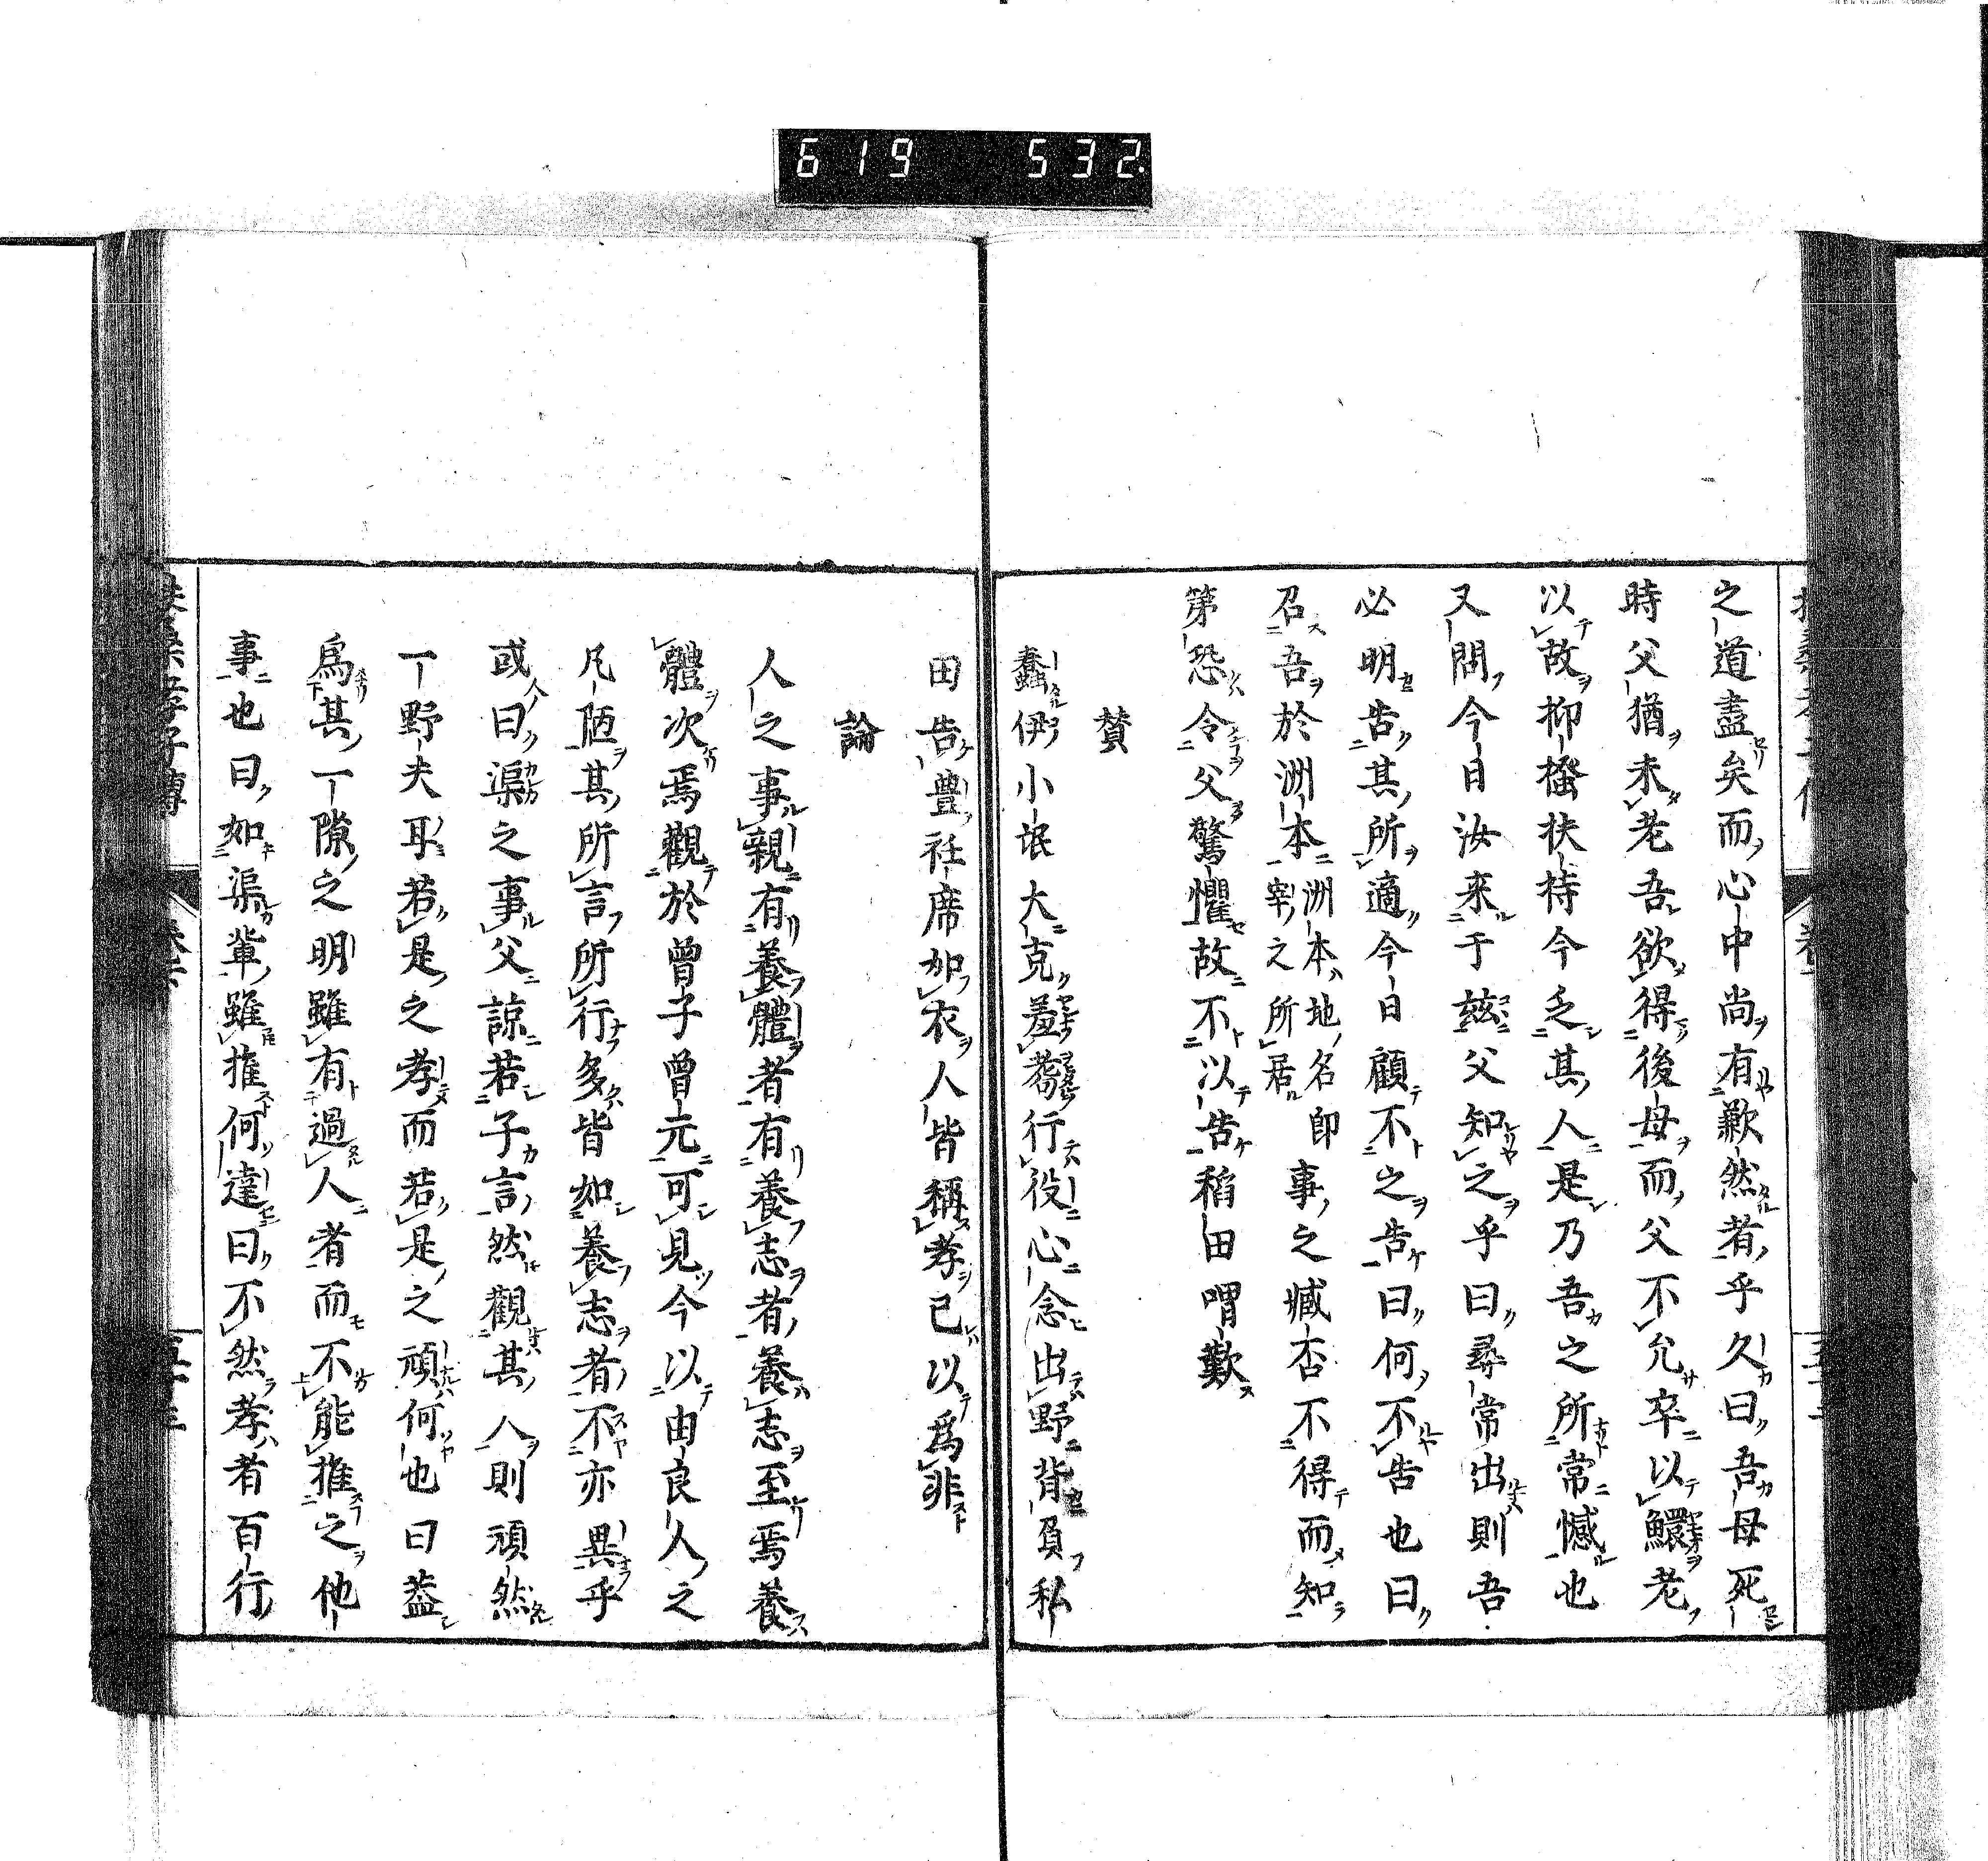 619 532
之道盡矣而心中尚有歉然者乎久曰吾母死
時父猶未老吾欲得後母而父不允卒以鰥老
以故抑搔扶持今乏其人是乃吾之所常憾也
又問今日汝来于茲父知之乎曰尋常出則吾
必明告其所適今日顧不之告曰何不告也曰
召吾於洲本洲本地名即宰之所居事之臧否不得而知
第恐令父驚懼故不以告稲田喟歎
賛
蠢伊小氓大克羞耈行役心念出野背負私
田告豊社席如衣人皆稱孝己以爲非
論
人之事親有養體者有養志者養志至焉養
體次焉觀於曾子曾元可見今以由良人之
凡陋其所言所行多皆如養志者不亦異乎
或曰渠之事父諒若子言然觀其人則頑然
一野夫耳若是之孝而若是之頑何也曰蓋
爲其一隙之明雖有過人者而不能推之他
事也曰如渠輩雖推何達曰不然孝者百行